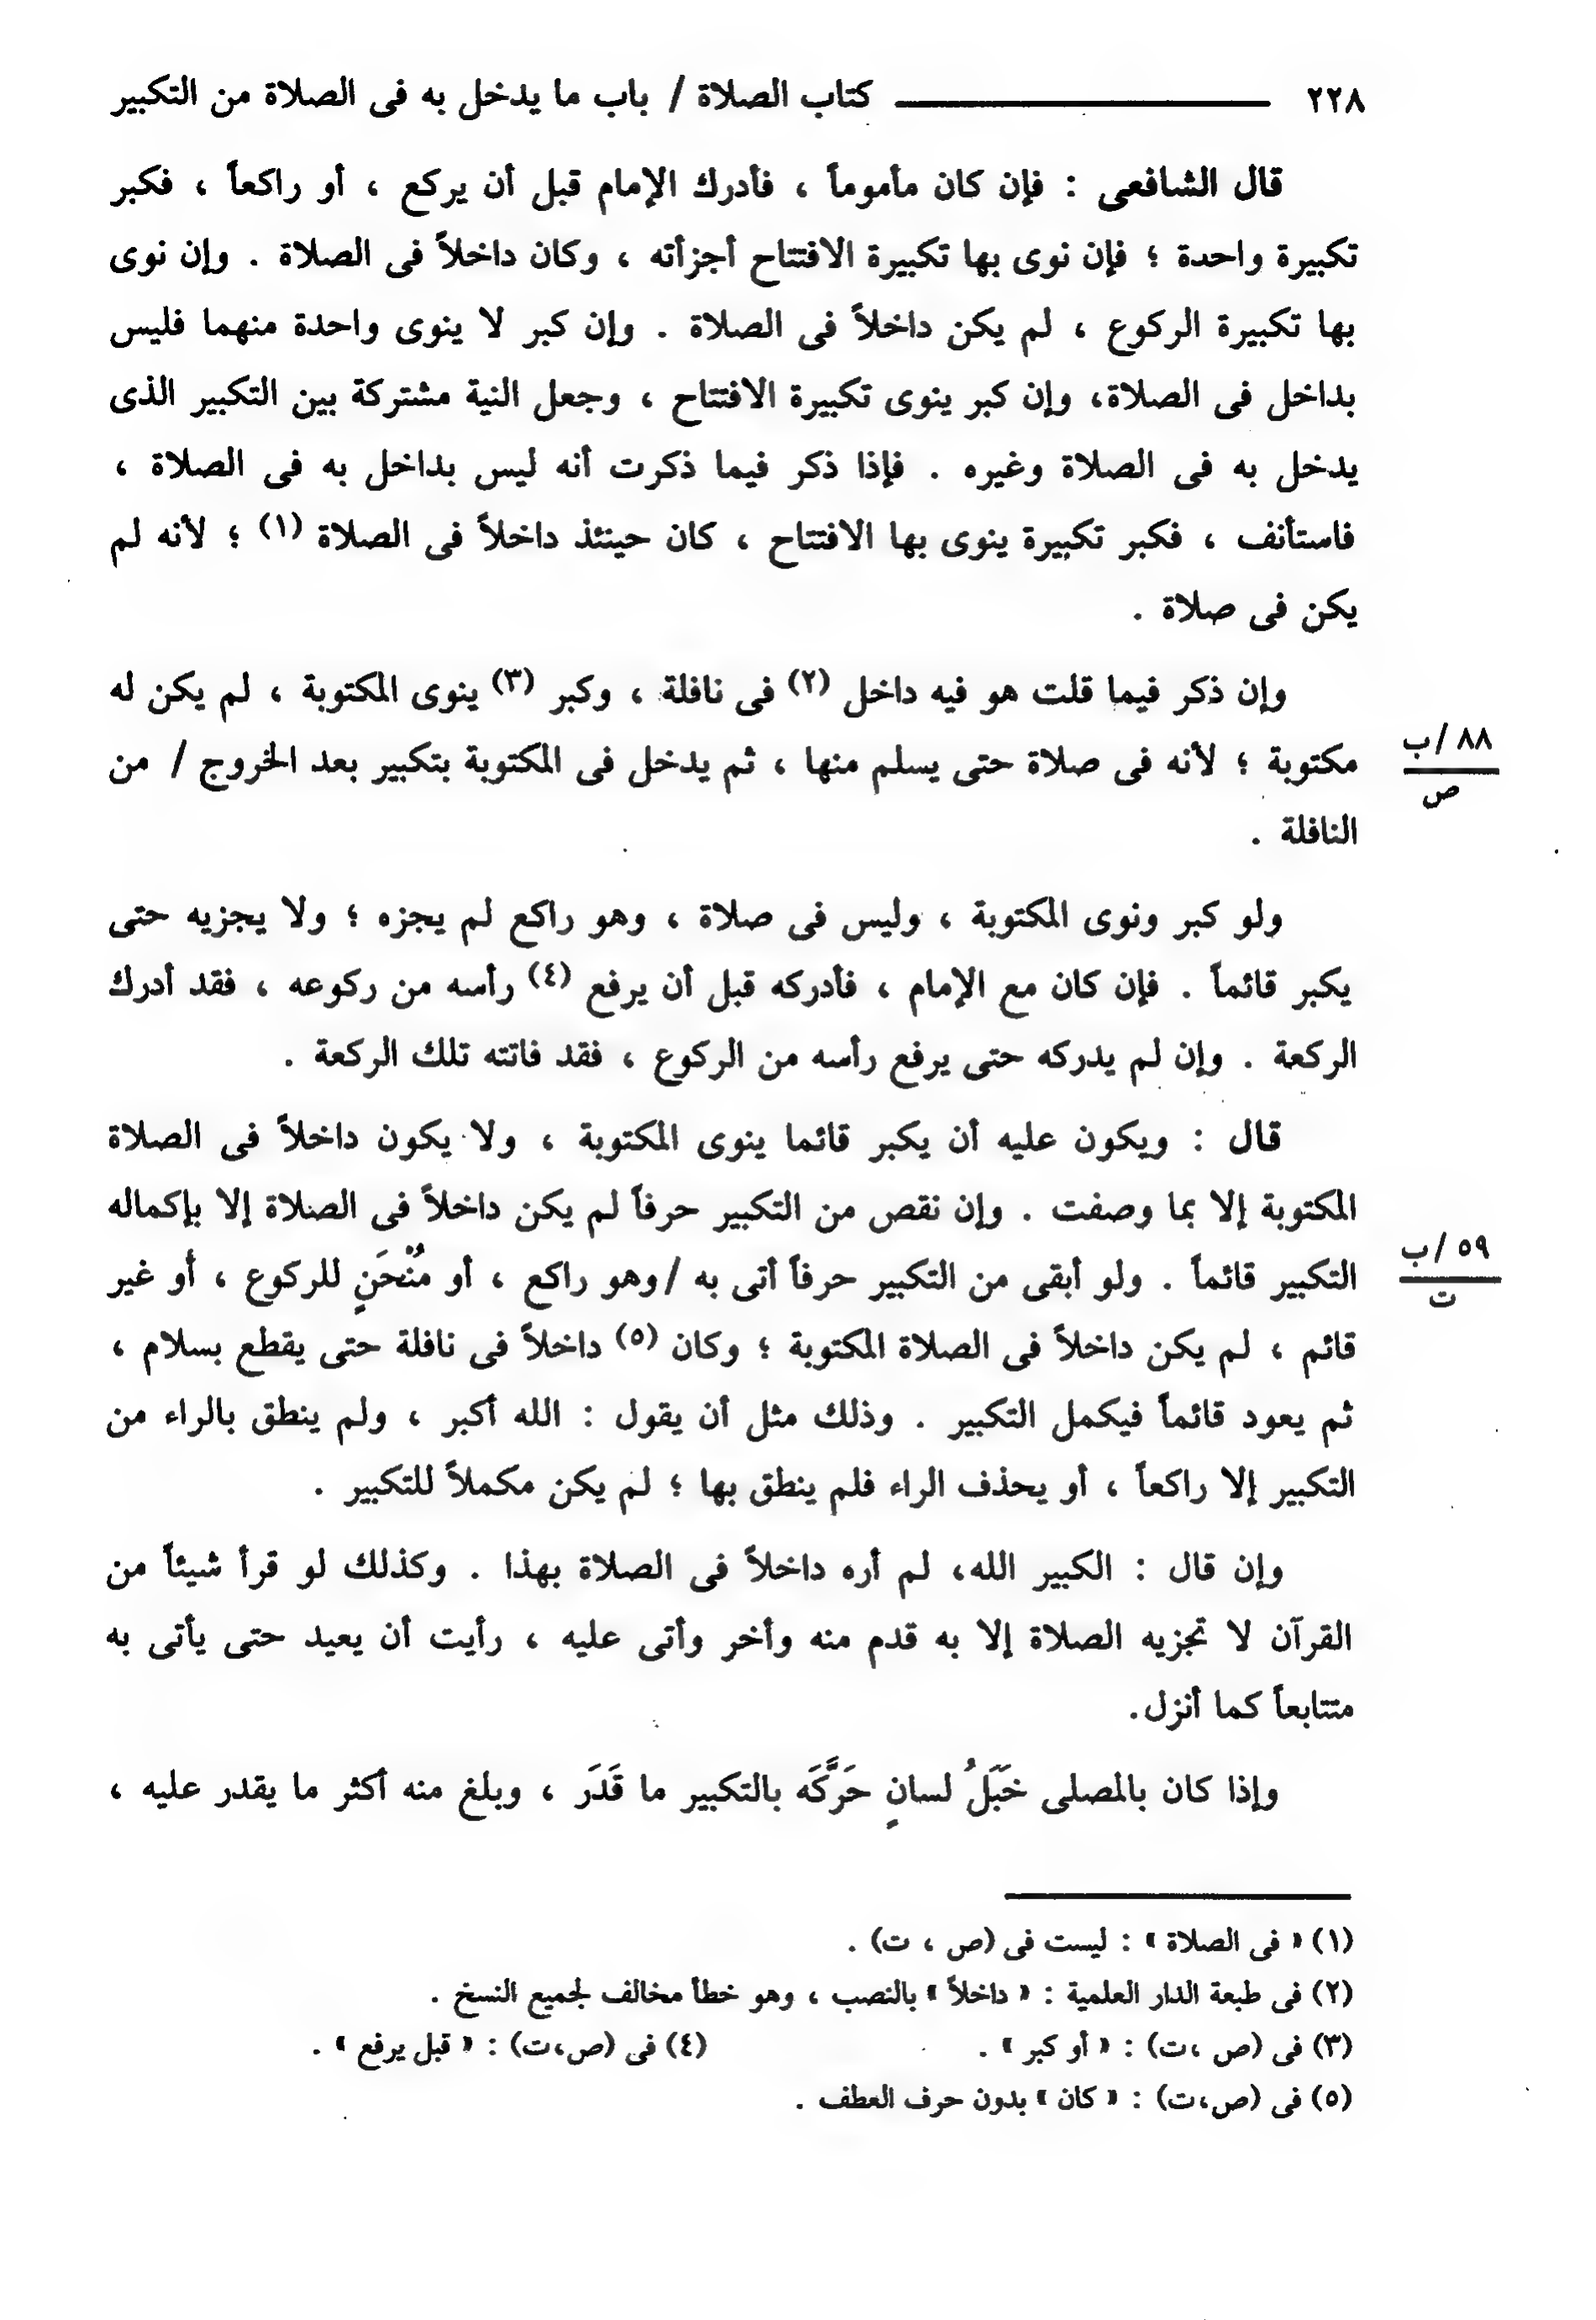 ٢٢٨ كتاب الصلاة / باب ما يدخل به فى الصلاة من التكبير
قال الشافعى : فإن كان مأموماً ، فأدرك الإمام قبل أن يركع ، أو راكعاً ، فكبر
تكبيرة واحدة ؛ فإن نوى بها تكبيرة الافتتاح أجزأته ، وكان داخلاً فى الصلاة . وإن نوى
بها تكبيرة الركوع ، لم يكن داخلاً فى الصلاة . وإن كبر لا ينوى واحدة منهما فليس
بداخل فى الصلاة، وإن كبر ينوى تكبيرة الافتتاح ، وجعل النية مشتركة بين التكبير الذى
يدخل به فى الصلاة وغيره . فإذا ذكر فيما ذكرت أنه ليس بداخل به فى الصلاة ،
فاستأنف ، فكبر تكبيرة ينوى بها الافتتاح ، كان حينئذ داخلاً فى الصلاة (١) ؛ لأنه لم
يكن فى صلاة .
وإن ذكر فيما قلت هو فيه داخل (٢) فى نافلة ، وكبر (٣) ينوى المكتوبة ، لم يكن له
مكتوبة ؛ لأنه فى صلاة حتى يسلم منها ، ثم يدخل فى المكتوبة بتكبير بعد الخروج / من
٨٨ /ب
ص
النافلة .
ولو كبر ونوى المكتوبة ، وليس فى صلاة ، وهو راكع لم يجزه ؛ ولا يجزيه حتى
يكبر قائماً . فإن كان مع الإمام ، فأدركه قبل أن يرفع (٤) رأسه من ركوعه ، فقد أدرك
الركعة . وإن لم يدركه حتى يرفع رأسه من الركوع ، فقد فاتته تلك الركعة .
قال : ويكون عليه أن يكبر قائما ينوى المكتوبة ، ولا يكون داخلاً فى الصلاة
المكتوبة إلا بما وصفت . وإن نقص من التكبير حرفاً لم يكن داخلاً فى الصلاة إلا بإكماله
التكبير قائماً . ولو أبقى من التكبير حرفاً أتى به /وهو راكع ، أو مُنْحَنٍ للركوع ، أو غير
٥٩ /ب
ت
قائم ، لم يكن داخلاً فى الصلاة المكتوبة ؛ وكان (٥) داخلاً فى نافلة حتى يقطع بسلام ،
ثم يعود قائماً فيكمل التكبير . وذلك مثل أن يقول : الله أكبر ، ولم ينطق بالراء من
التكبير إلا راكعاً ، أو يحذف الراء فلم ينطق بها ؛ لم يكن مكملاً للتكبير .
وإن قال : الكبير الله، لم أره داخلاً فى الصلاة بهذا . وكذلك لو قرأ شيئاً من
القرآن لا تجزيه الصلاة إلا به قدم منه وأخر وأتى عليه ، رأيت أن يعيد حتى يأتى به
متتابعاً كما أنزل.
وإذا كان بالمصلى خَبَلُ لسانٍ حَرَّكَه بالتكبير ما قَدَر ، وبلغ منه أكثر ما يقدر عليه ،
(١) « فى الصلاة » : ليست فى (ص ، ت) .
(٢) فى طبعة الدار العلمية : « داخلاً » بالنصب ، وهو خطأ مخالف لجميع النسخ .
(٣) فى (ص ،ت) : « أو كبر » . (٤) فى (ص،ت) : « قبل يرفع » .
(٥) فى (ص،ت) : « كان » بدون حرف العطف .